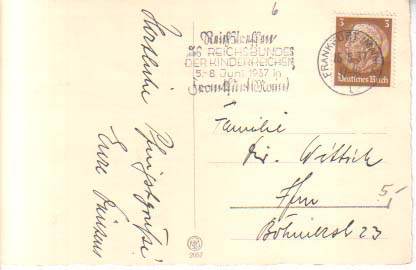 6
Reichstreffen
des REICHSBUNDES
DER KINDERREICHEN
5.-8. Juni 1937 in
Frankfurt (Main)
FRANKFURT (MAIN)
3 3
Deutsches Reich
Herzliche
Pfingstgrüße
Eure
Familie
Dir. Wittich
Ffm
Böhmerstr 23
5,-
2057